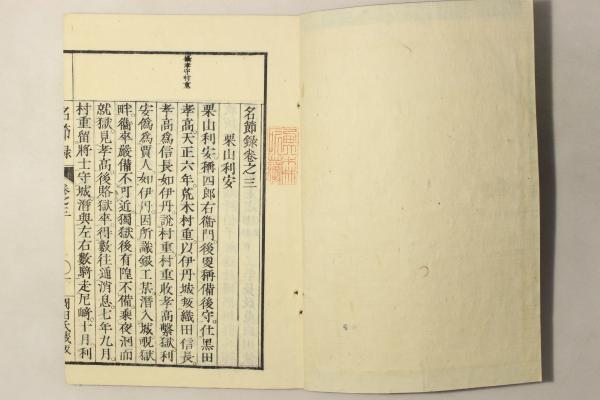 名節錄卷之三
栗山利安
栗山利安稱四郎右衞門後更稱備後守仕黑田
孝高天正六年荒木村重以伊丹城叛織田信長
孝高爲信長如伊丹說村重村重收孝高繫獄利
安僞爲賈人如伊丹因所識銀工某潛入城覘獄
畔衞卒嚴備不可近獨獄後有隍不備乘夜泅而
就獄見孝高後賂獄卒得數往通消息七年九月
村重留將士守城潛與左右數騎走尼崎十月利
名節錄 卷之三